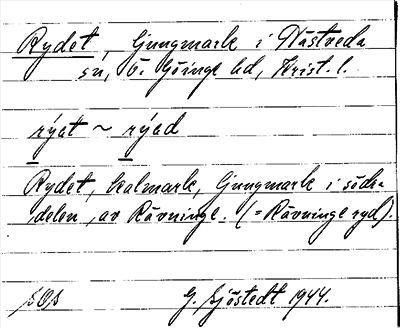 Rydet, Ljungmark i Västveda
sn, Ö. Göinge hd, Krist. l.
rýet ~ rýed
Rydet, kalmark, Ljungmark i södra
delen av Rävninge. (= Rävninge ryd).
G. Sjöstedt 1944.